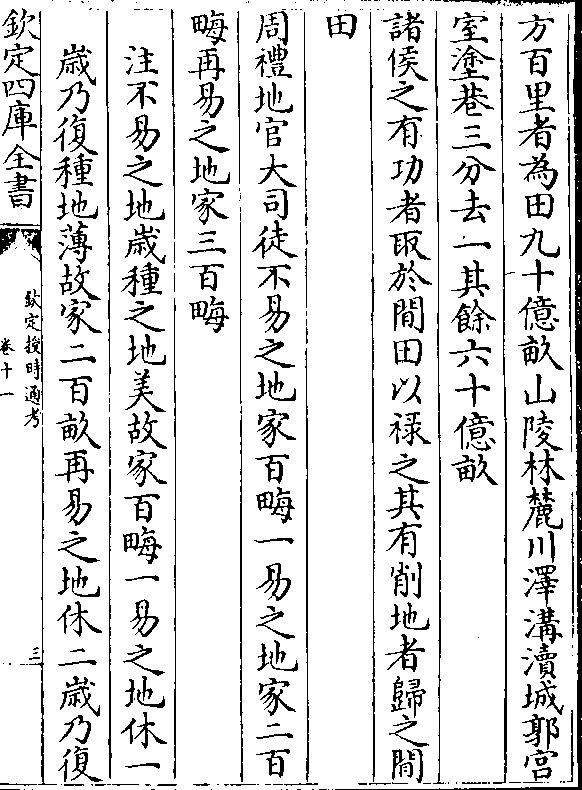 方百里者為田九十億畝山陵林麓川澤溝瀆城郭宮
室塗巷三分去一其餘六十億畝
諸侯之有功者取於閒田以祿之其有削地者歸之閒
田
周禮地官大司徒不易之地家百畮一易之地家二百
畮再易之地家三百畮
注不易之地歲種之地美故家百畮一易之地休一
歲乃復種地薄故家二百畝再易之地休二歲乃復
欽定四庫全書
欽定授時通考
卷十一
三